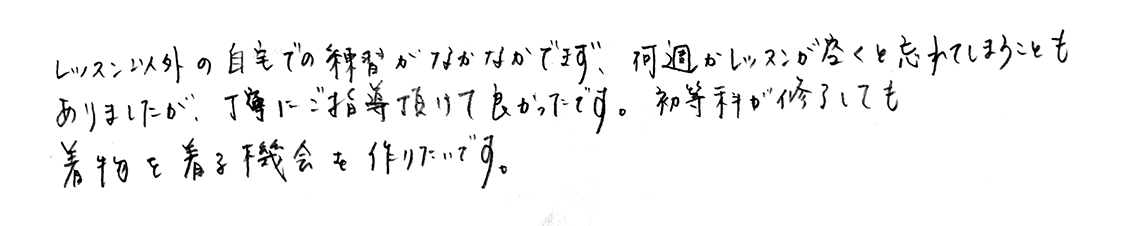 レッスン以外の自宅での練習がなかなかできず、何週かレッスンが空くと忘れてしまうことも
ありましたが、丁寧にご指導頂けて良かったです。初等科が修了しても
着物を着る機会を作りたいです。